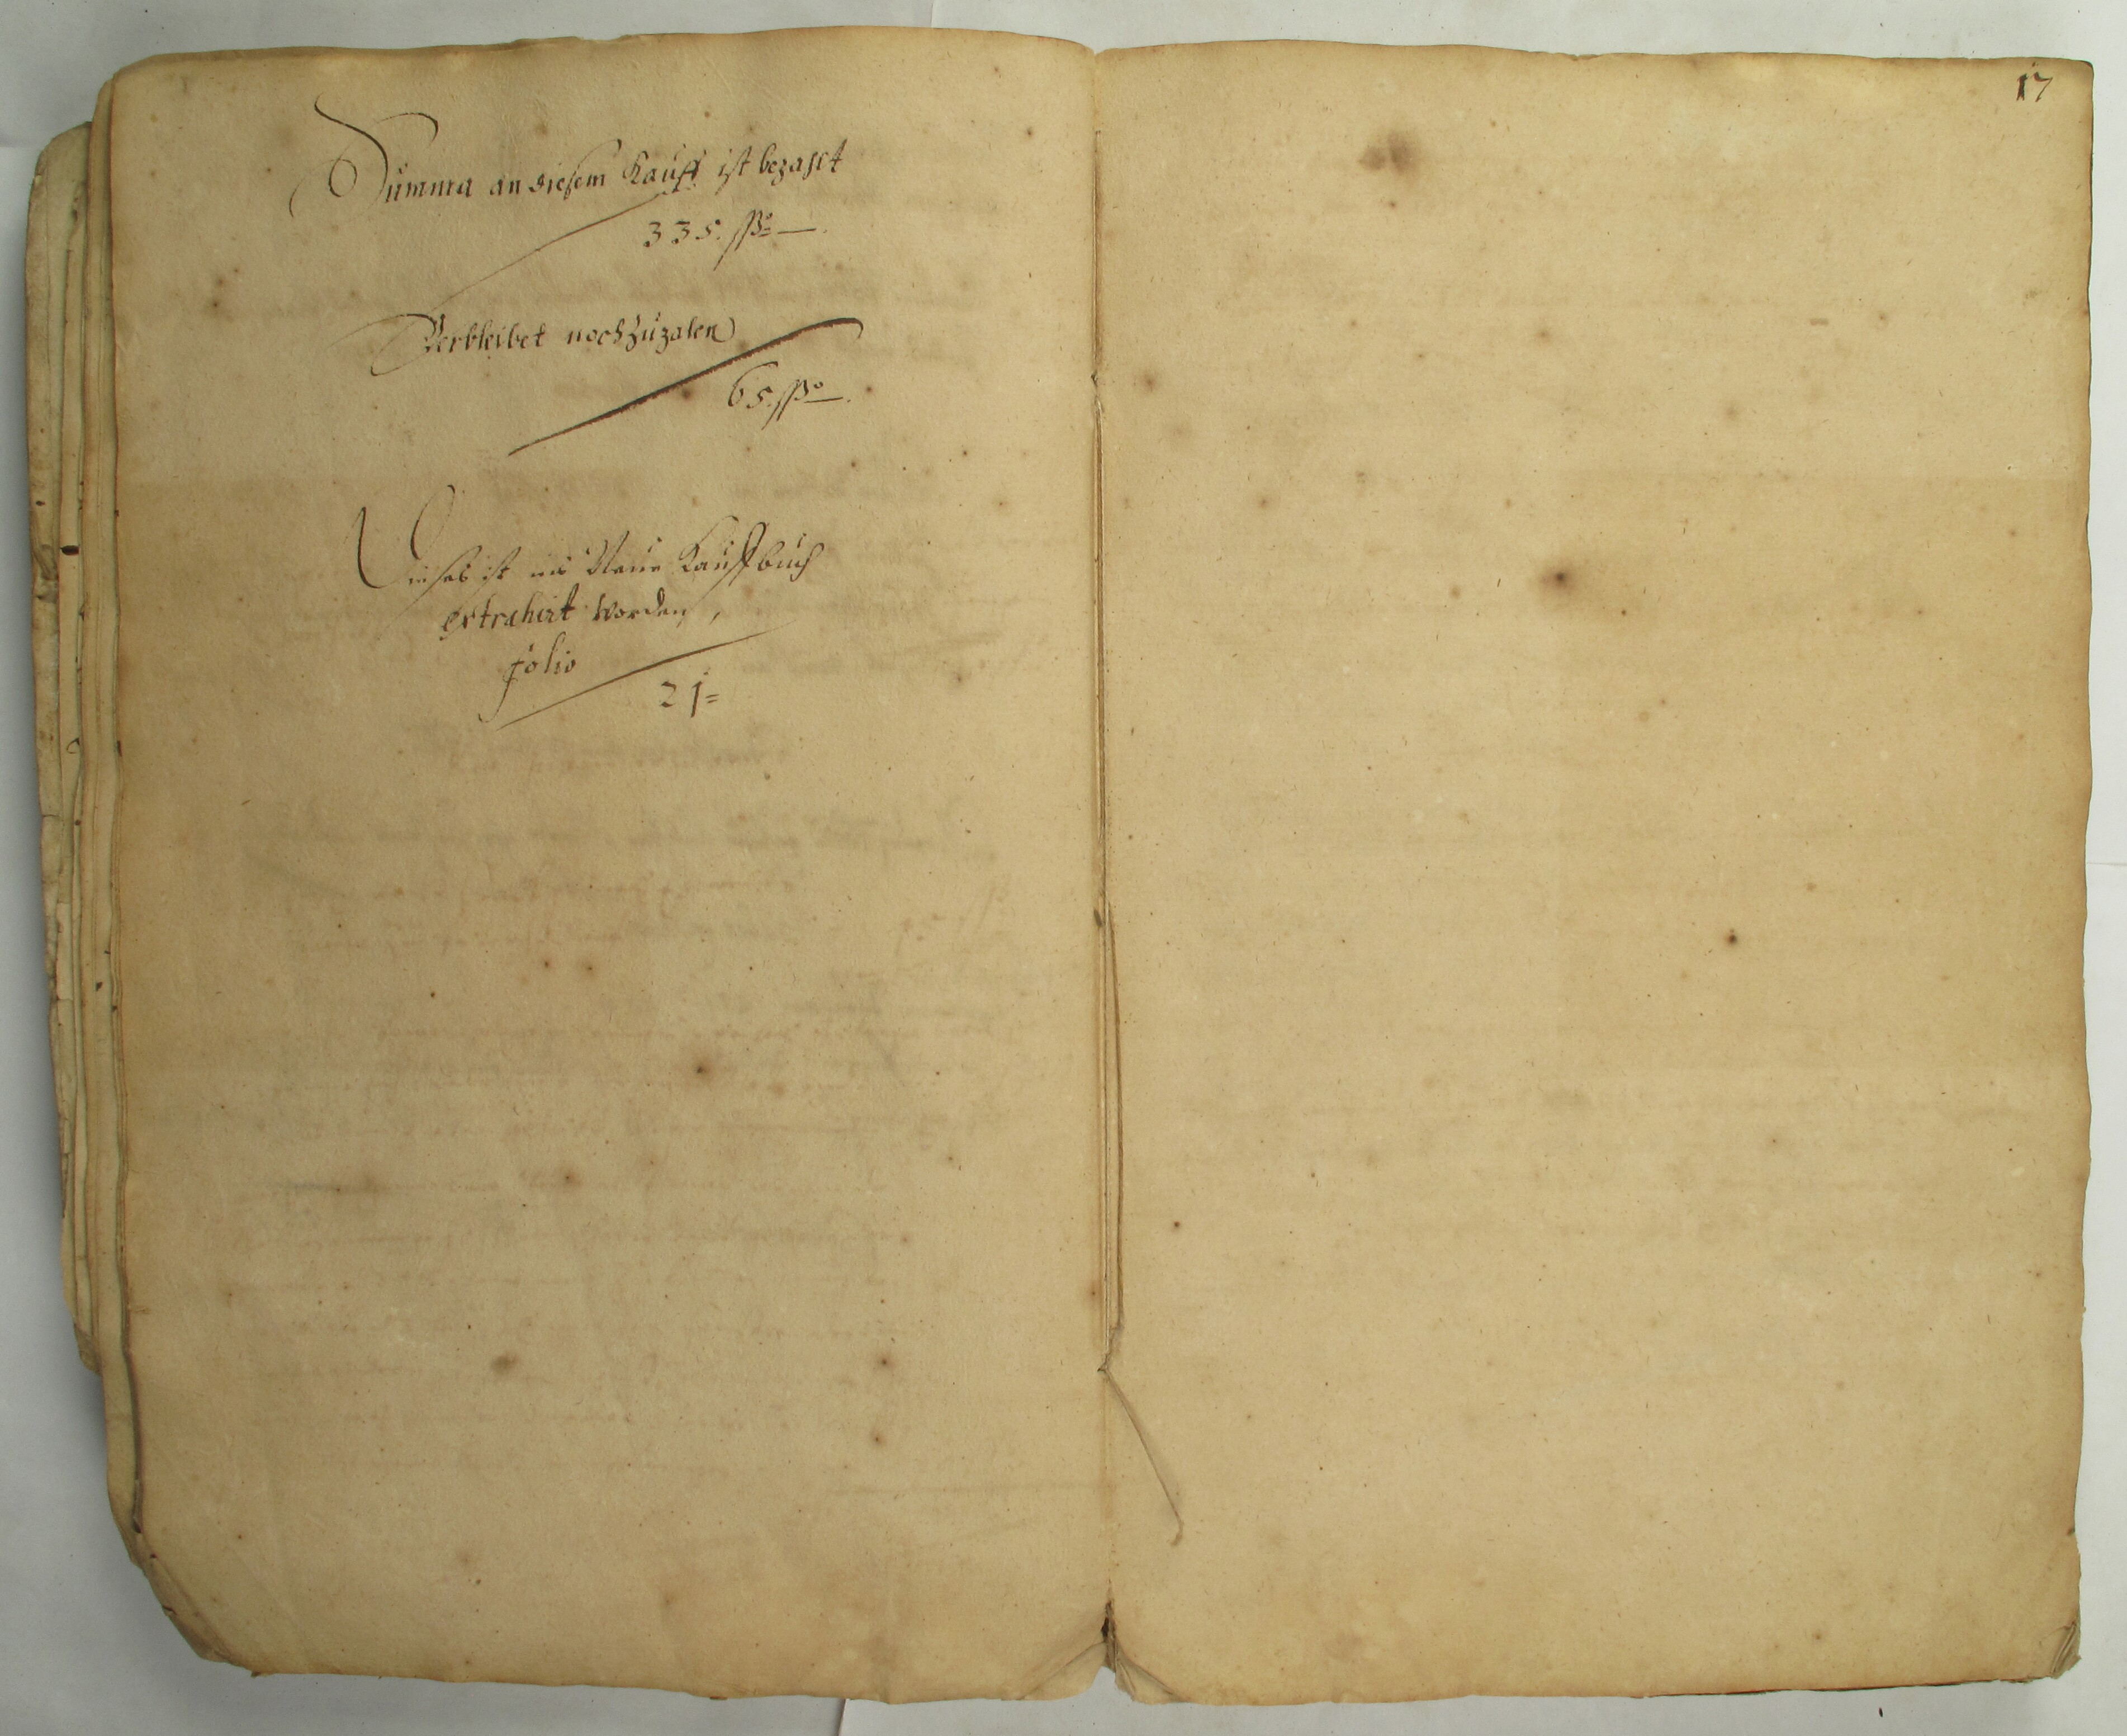 Summa an diesem Kauff ist bezahlt
335. ßo —.
Verbleibet noch zuzalen
65. ßo —.
Dieses ist ins Neue Kauffbuch
extrahirt worden,
folio
21=
17